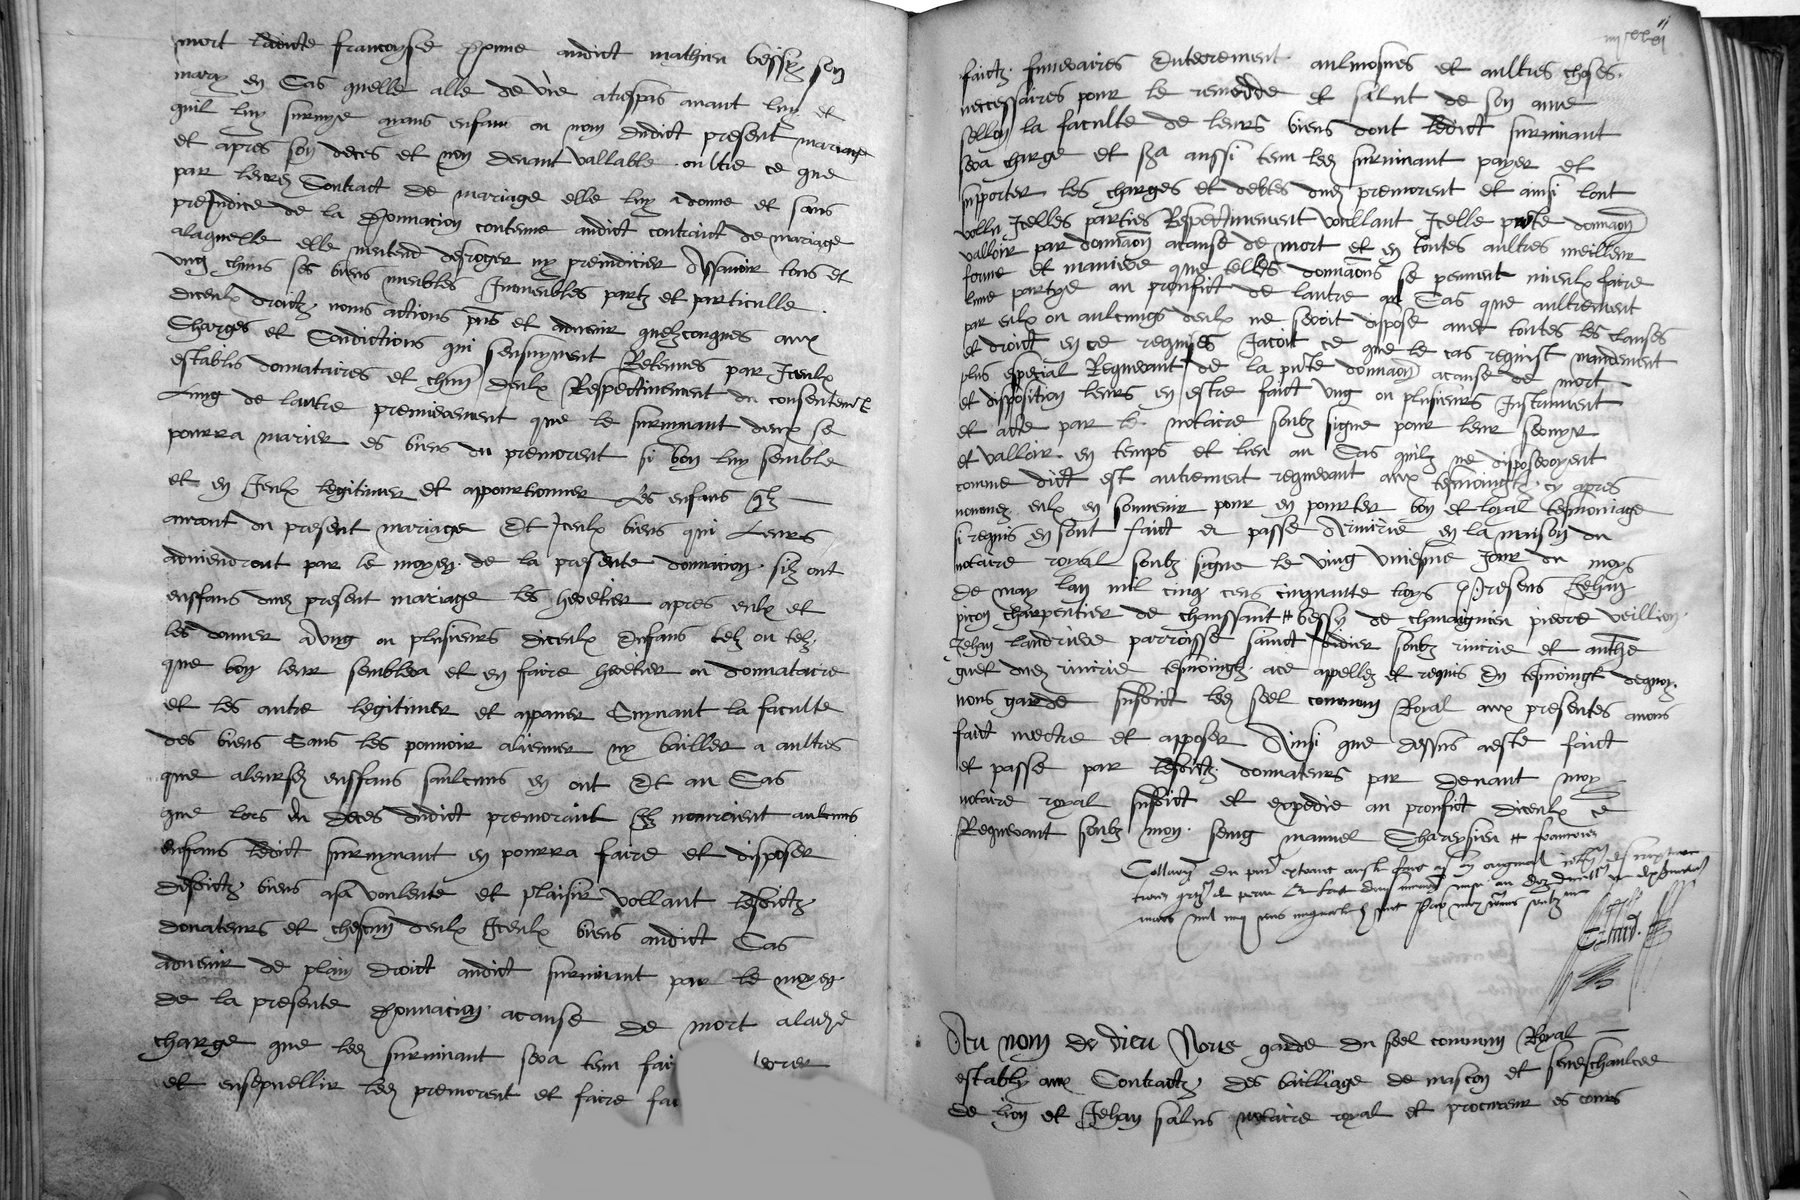 mort ladicte francoyse donne audict mathieu bessy son
mary en cas quelle alle de vie a trespas avant luy et
quil luy survyve ayans enfans ou non dudict present mariage
et apres son deces et non devant vallable oultre ce que
par leurd contract de mariage elle luy a donne et sans
prejudice de la donnacion contenue audict contraict de mariage
alaquelle elle nentend desroger ny prejudicier Assavoir tous et
ung chuns ses biens meubles Inmeubles partz et particulle
diceulx droictz noms actions pns et advenir quelzconques aux
charges et condictions qui sensuyvent Retenues par Iceulx
establis donnataires et chun deulx Respectivement du consentemt
lung de lautre premierement que le survivant deulx se
pourra marier es biens du premorent si bon luy semble
et en Iceulx legitimer et appourtionner les enfans qlz
auront du present mariage Et Iceulx biens qui leurs
adviendront par le moyen de la presente donnacion silz ont
ensfans dud present mariage les heretier apres eulx et
les donner a ung ou plusieurs diceulx enfans telz ou telz
que bon leur semblera et en faire heretier ou donnataire
et les autre legitimer et appaner suyvant la faculte
des biens sans les pouvoir aliener ny bailler a aultres
que aleursd ensfans saulcuns en ont Et au cas
que lors du deces dudict premorant Ilz nauroient aulcuns
enfans ledict survyvant en pourra faire et disposer
desdictz biens asa voulente et plaisir vollant lesdictz
donateurs et chescun deulx Iceulx biens audict cas
advenir de plain droict audict survivant par le moyen
de la presente donnacion acause de mort aladicte
charge que led survivant sera tenu fai terrer
et ensepvellir led premorent et faire fai
faictz funeraires enterrement aulmosnes et aultres choses
neccessaires pour le remedde et salut de son ame
sellon la faculte de leurs biens dont ledict survivant
sera charge et sera aussi tenu led survivant payer et
supporter les charges et debtes dud premorent et ainsi lont
vollu Icelles parties Respectivement voullant Icelle pnte donnaon
valloir par donnaon acause de mort et en toutes aultres meilleur
forme et maniere que telles donnaons se peuvent mieulx faire
lune partye au prouffict de lautre au cas que aultrement
par eulx ou aulcungs deulx ne seroit dispose avec toutes les clauses
et droict en ce requises Jacoit ce que le cas requist mandement
plus especial Requerant de la pnte donnaon acause de mort
et disposition leurs en estre faict ung ou plusieurs Instrument
et acte par le notaire soubz signe pour leur servyr
et valloir en temps et lieu au cas quilz ne disposeroyent
comme dict est autrement requerant aux tesmoingtz cy apres
nommez eulx en souvenir pour en pourter bon et loyal tesmoniage
si requis en sont faict et passe a rivirie en la maison du
notaire royal soubz signe le ving uniesme Jour du moys
de may lan mil cinq cens cinquante troys Presens Jehan
picon charpentier de chaussant # bessy de chavaignieu pierre veillion
Jehan landriere parroysse sainct didier soubz rivirie et anthe
guet dud rivirie tesmoingtz ace appellez et requis En tesmoingt dequoy
nous garde susdict led seel commun Royal aux presentes avons
faict mectre et apposer Ainsi que dessus aeste faict
et passe par lesdictz donnateurs par devant moy
notaire royal susdict et expedie au prouffict diceulx ce
Requerant soubz mon seing manuel Chareysieu # francoies
Au nom de dieu Nous garde du seel commun Royal
estably aux contractz des bailliage de mascon et seneschaulcee
de lion et Jehan salus notaire royal et procureur es cours